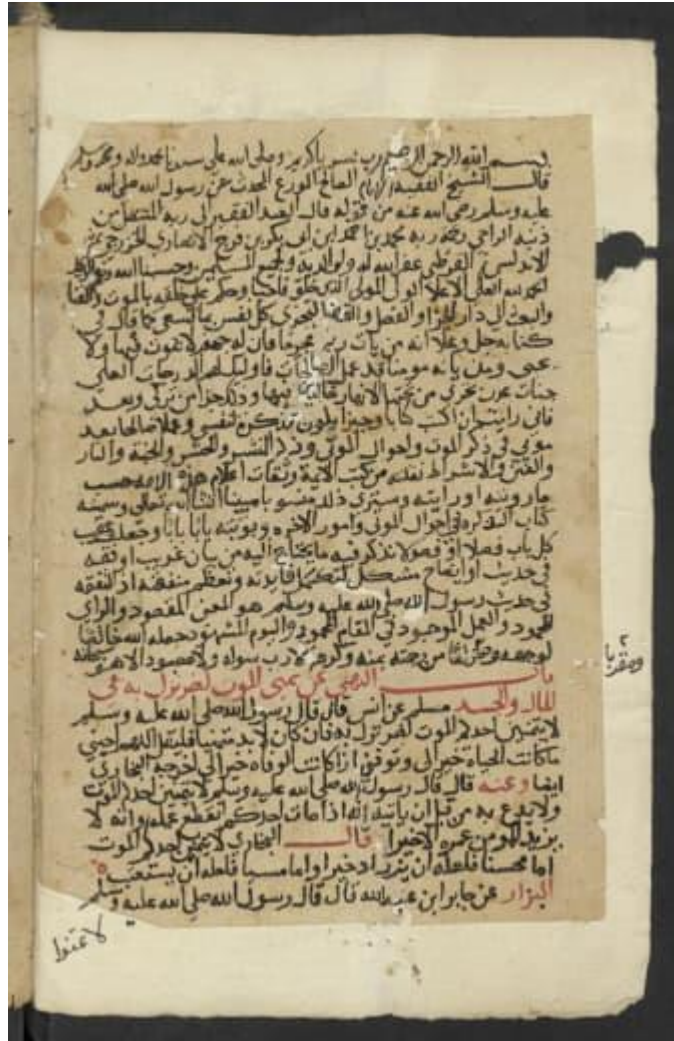 بسم الله الرحمن الرحيم رب يسر يا كريم وصلى الله على سيدنا محمد واله وصحبه وسلم
قال الشيخ الفقيه الامام العالم الورع المحدث عن رسول الله صلى الله
عليه وسلم رضي الله عنه من قوله قال العبد الفقير الى ربه المتنصل من
ذنبه الراجي رحمة ربه محمد بن احمد ابن ابى بكر بن فرح الانصاري الخزرجي
الاندلسي القرطبي غفر الله له ولوالديه ولجميع المسلمين وحسبنا الله
الحمد لله العلي الاعلا الولي المولى الذي خلق فاحيا وحكم على خلقه بالموت والفنا
والبعث الى دار الجزا والفصل والقضا لتجزى كل نفس بما تسعى كما قال في
كتابه جل وعلا انه من يات ربه مجرما فان له جهنم لا يموت فيها ولا
يحيى ومن ياته مومنا قد عمل الصالحات فاوليك لهم الدرجات العلى
جنات عدن تجري من تحتها الانهار خالدين فيها وذلك جزا من تزكى وبعد
فاني رايت ان اكتب كتابا وجيزا يكون تذكرة لنفسي وعملا صالحا بعد
موتي في ذكر الموت واحوال الموتى وذكر النشر والحشر والجنة والنار
والفتن والاشراط نقلته من كتب الايمة وثقات اعلام هذه الامة حسب
ما رويته او رايته وسترى ذلك منسوبا مبينا ان شا الله تعالى وسميته
كتاب التذكرة في احوال الموتى وامور الاخرة وبوبته بابا بابا وجعلت عقب
كل باب فصلا او فصولا نذكر فيه ما يحتاج اليه من بيان غريب او فقه
في حديث او ايضاح مشكل لتكمل فايدته وتعظم منفعته اذ التفقه
في حديث رسول الله صلى الله عليه وسلم هو المعنى المقصود والراي
المحمود والعمل الموجود في المقام المحمود واليوم المشهود جعله الله خالصا
لوجهه ومقربا من رحمته بمنه وكرمه لا رب سواه ولا معبود الا هو سبحانه
باب النهي عن تمني الموت لضر نزل به في
المال والجسد مسلم عن انس قال قال رسول الله صلى الله عليه وسلم
لا يتمنين احدكم الموت لضر نزل به فان كان لا بد متمنيا فليقل اللهم احيني
ما كانت الحياة خيرا لي وتوفني اذا كانت الوفاة خيرا لي اخرجه البخاري
ايضا وعنه قال قال رسول الله صلى الله عليه وسلم لا يتمنين احدكم الموت
ولا يدع به من قبل ان ياتيه انه اذا مات احدكم انقطع عمله وانه لا
يزيد المومن عمره الا خيرا قال البخاري لا يتمنى احدكم الموت
اما محسنا فلعله ان يزداد خيرا واما مسيا فلعله ان يستعتب
البزار عن جابر ابن عبد الله قال قال رسول الله صلى الله عليه وسلم
لا تمنوا
ومقربا